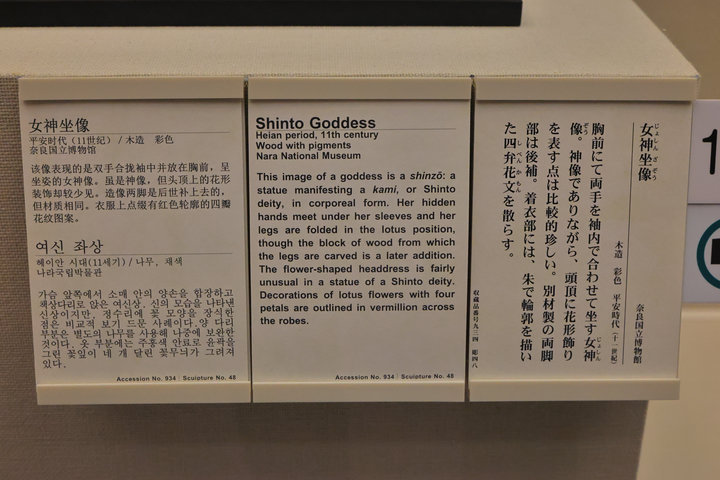 女神坐像
平安时代（11世纪）/ 木造　彩色
奈良国立博物馆
该像表现的是双手合拢袖中并放在胸前，呈
坐姿的女神像。虽是神像，但头顶上的花形
装饰却较少见。造像两脚是后世补上去的，
但材质相同。衣服上点缀有红色轮廓的四瓣
花纹图案。
여신 좌상
헤이안 시대(11세기) / 나무, 채색
나라국립박물관
가슴 앞쪽에서 소매 안의 양손을 합장하고
책상다리로 앉은 여신상. 신의 모습을 나타낸
신상이지만, 정수리에 꽃 모양을 장식한
점은 비교적 보기 드문 사례이다. 양 다리
부분은 별도의 나무를 사용해 나중에 보완한
것이다. 옷 부분에는 주홍색 안료로 윤곽을
그린 꽃잎이 네 개 달린 꽃무늬가 그려져
있다.
Accession No. 934 | Sculpture No. 48
Shinto Goddess
Heian period, 11th century
Wood with pigments
Nara National Museum
This image of a goddess is a shinzō: a
statue manifesting a kami, or Shinto
deity, in corporeal form. Her hidden
hands meet under her sleeves and her
legs are folded in the lotus position,
though the block of wood from which
the legs are carved is a later addition.
The flower-shaped headdress is fairly
unusual in a statue of a Shinto deity.
Decorations of lotus flowers with four
petals are outlined in vermillion across
the robes.
Accession No. 934 | Sculpture No. 48
女神坐像
じょしんざぞう
木造　彩色　平安時代（十一世紀）
奈良国立博物館
胸前にて両手を袖内で合わせて坐す女神
じょしん
像。神像でありながら、頭頂に花形飾り
ぞう
を表す点は比較的珍しい。別材製の両脚
部は後補。着衣部には、朱で輪郭を描い
た四弁花文を散らす。
しべんかもん
収蔵品番号九三四　彫四八
1